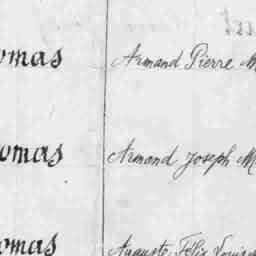 omas Armand Pierre M
omas Armand Joseph M
omas Auguste Félix Louis